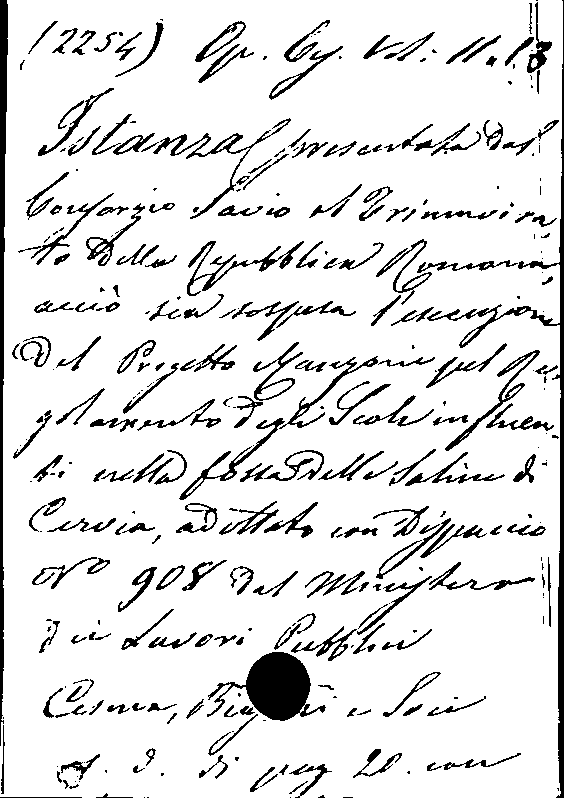 (2254) Op. Cej. Vol: II. n. 13
Istanza presentata dal
Consorzio Savio al Triumvira
to della Repubblica Romana,
acciò sia sospesa l'esecuzione
del Progetto Manzoni pel Re-
golamento degli Scoli influen-
ti nella fossa delle Saline di
Cervia, adottato con Dispaccio
N° 908 del Ministero
dei Lavori Pubblici
Cesena, e Soci
s. d. di pag 20. con